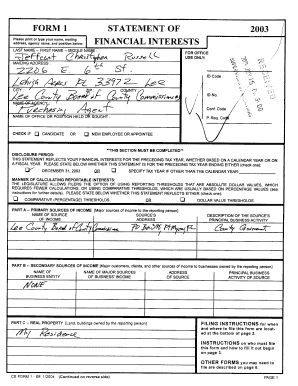 FORM 1
STATEMENT OF
FINANCIAL INTERESTS
2003
Please print or type your name, mailing
address, agency name, and position below:
LAST NAME -- FIRST NAME -- MIDDLE NAME
Jeffcoat Christopher Russell
MAILING ADDRESS
2206 E. 6th St.
Lehigh Acres Fl 33972 Lee
CITY ZIP COUNTY
Lee County Board of County Commissioners
NAME OF AGENCY
Purchasing Agent
NAME OF OFFICE OR POSITION HELD OR SOUGHT
FOR OFFICE
USE ONLY:
ID Code
ID No.
Conf. Code
P. Req. Code
RECEIVED
CHECK IF CANDIDATE OR NEW EMPLOYEE OR APPOINTEE
**THIS SECTION MUST BE COMPLETED**
DISCLOSURE PERIOD:
THIS STATEMENT REFLECTS YOUR FINANCIAL INTERESTS FOR THE PRECEDING TAX YEAR, WHETHER BASED ON A CALENDAR YEAR OR ON
A FISCAL YEAR. PLEASE STATE BELOW WHETHER THIS STATEMENT IS FOR THE PRECEDING TAX YEAR ENDING EITHER (check one):
DECEMBER 31, 2003 OR SPECIFY TAX YEAR IF OTHER THAN THE CALENDAR YEAR:
MANNER OF CALCULATING REPORTABLE INTERESTS:
THE LEGISLATURE ALLOWS FILERS THE OPTION OF USING REPORTING THRESHOLDS THAT ARE ABSOLUTE DOLLAR VALUES, WHICH
REQUIRES FEWER CALCULATIONS, OR USING COMPARATIVE THRESHOLDS, WHICH ARE USUALLY BASED ON PERCENTAGE VALUES (see
instructions for further details). PLEASE STATE BELOW WHETHER THIS STATEMENT REFLECTS EITHER (check one):
COMPARATIVE (PERCENTAGE) THRESHOLDS OR DOLLAR VALUE THRESHOLDS
PART A -- PRIMARY SOURCES OF INCOME [Major sources of income to the reporting person]
NAME OF SOURCE OF INCOME
SOURCE'S ADDRESS
DESCRIPTION OF THE SOURCE'S PRINCIPAL BUSINESS ACTIVITY
Lee County Board of County Commissioners PO Box 398 Ft Myers Fl County Government
PART B -- SECONDARY SOURCES OF INCOME [Major customers, clients, and other sources of income to businesses owned by the reporting person]
NAME OF BUSINESS ENTITY
NAME OF MAJOR SOURCES OF BUSINESS' INCOME
ADDRESS OF SOURCE
PRINCIPAL BUSINESS ACTIVITY OF SOURCE
NONE
PART C -- REAL PROPERTY [Land, buildings owned by the reporting person]
My Residence
FILING INSTRUCTIONS for when
and where to file this form are locat-
ed at the bottom of page 2.
INSTRUCTIONS on who must file
this form and how to fill it out begin
on page 3.
OTHER FORMS you may need to
file are described on page 6.
CE FORM 1 - Eff. 1/2004 (Continued on reverse side) PAGE 1